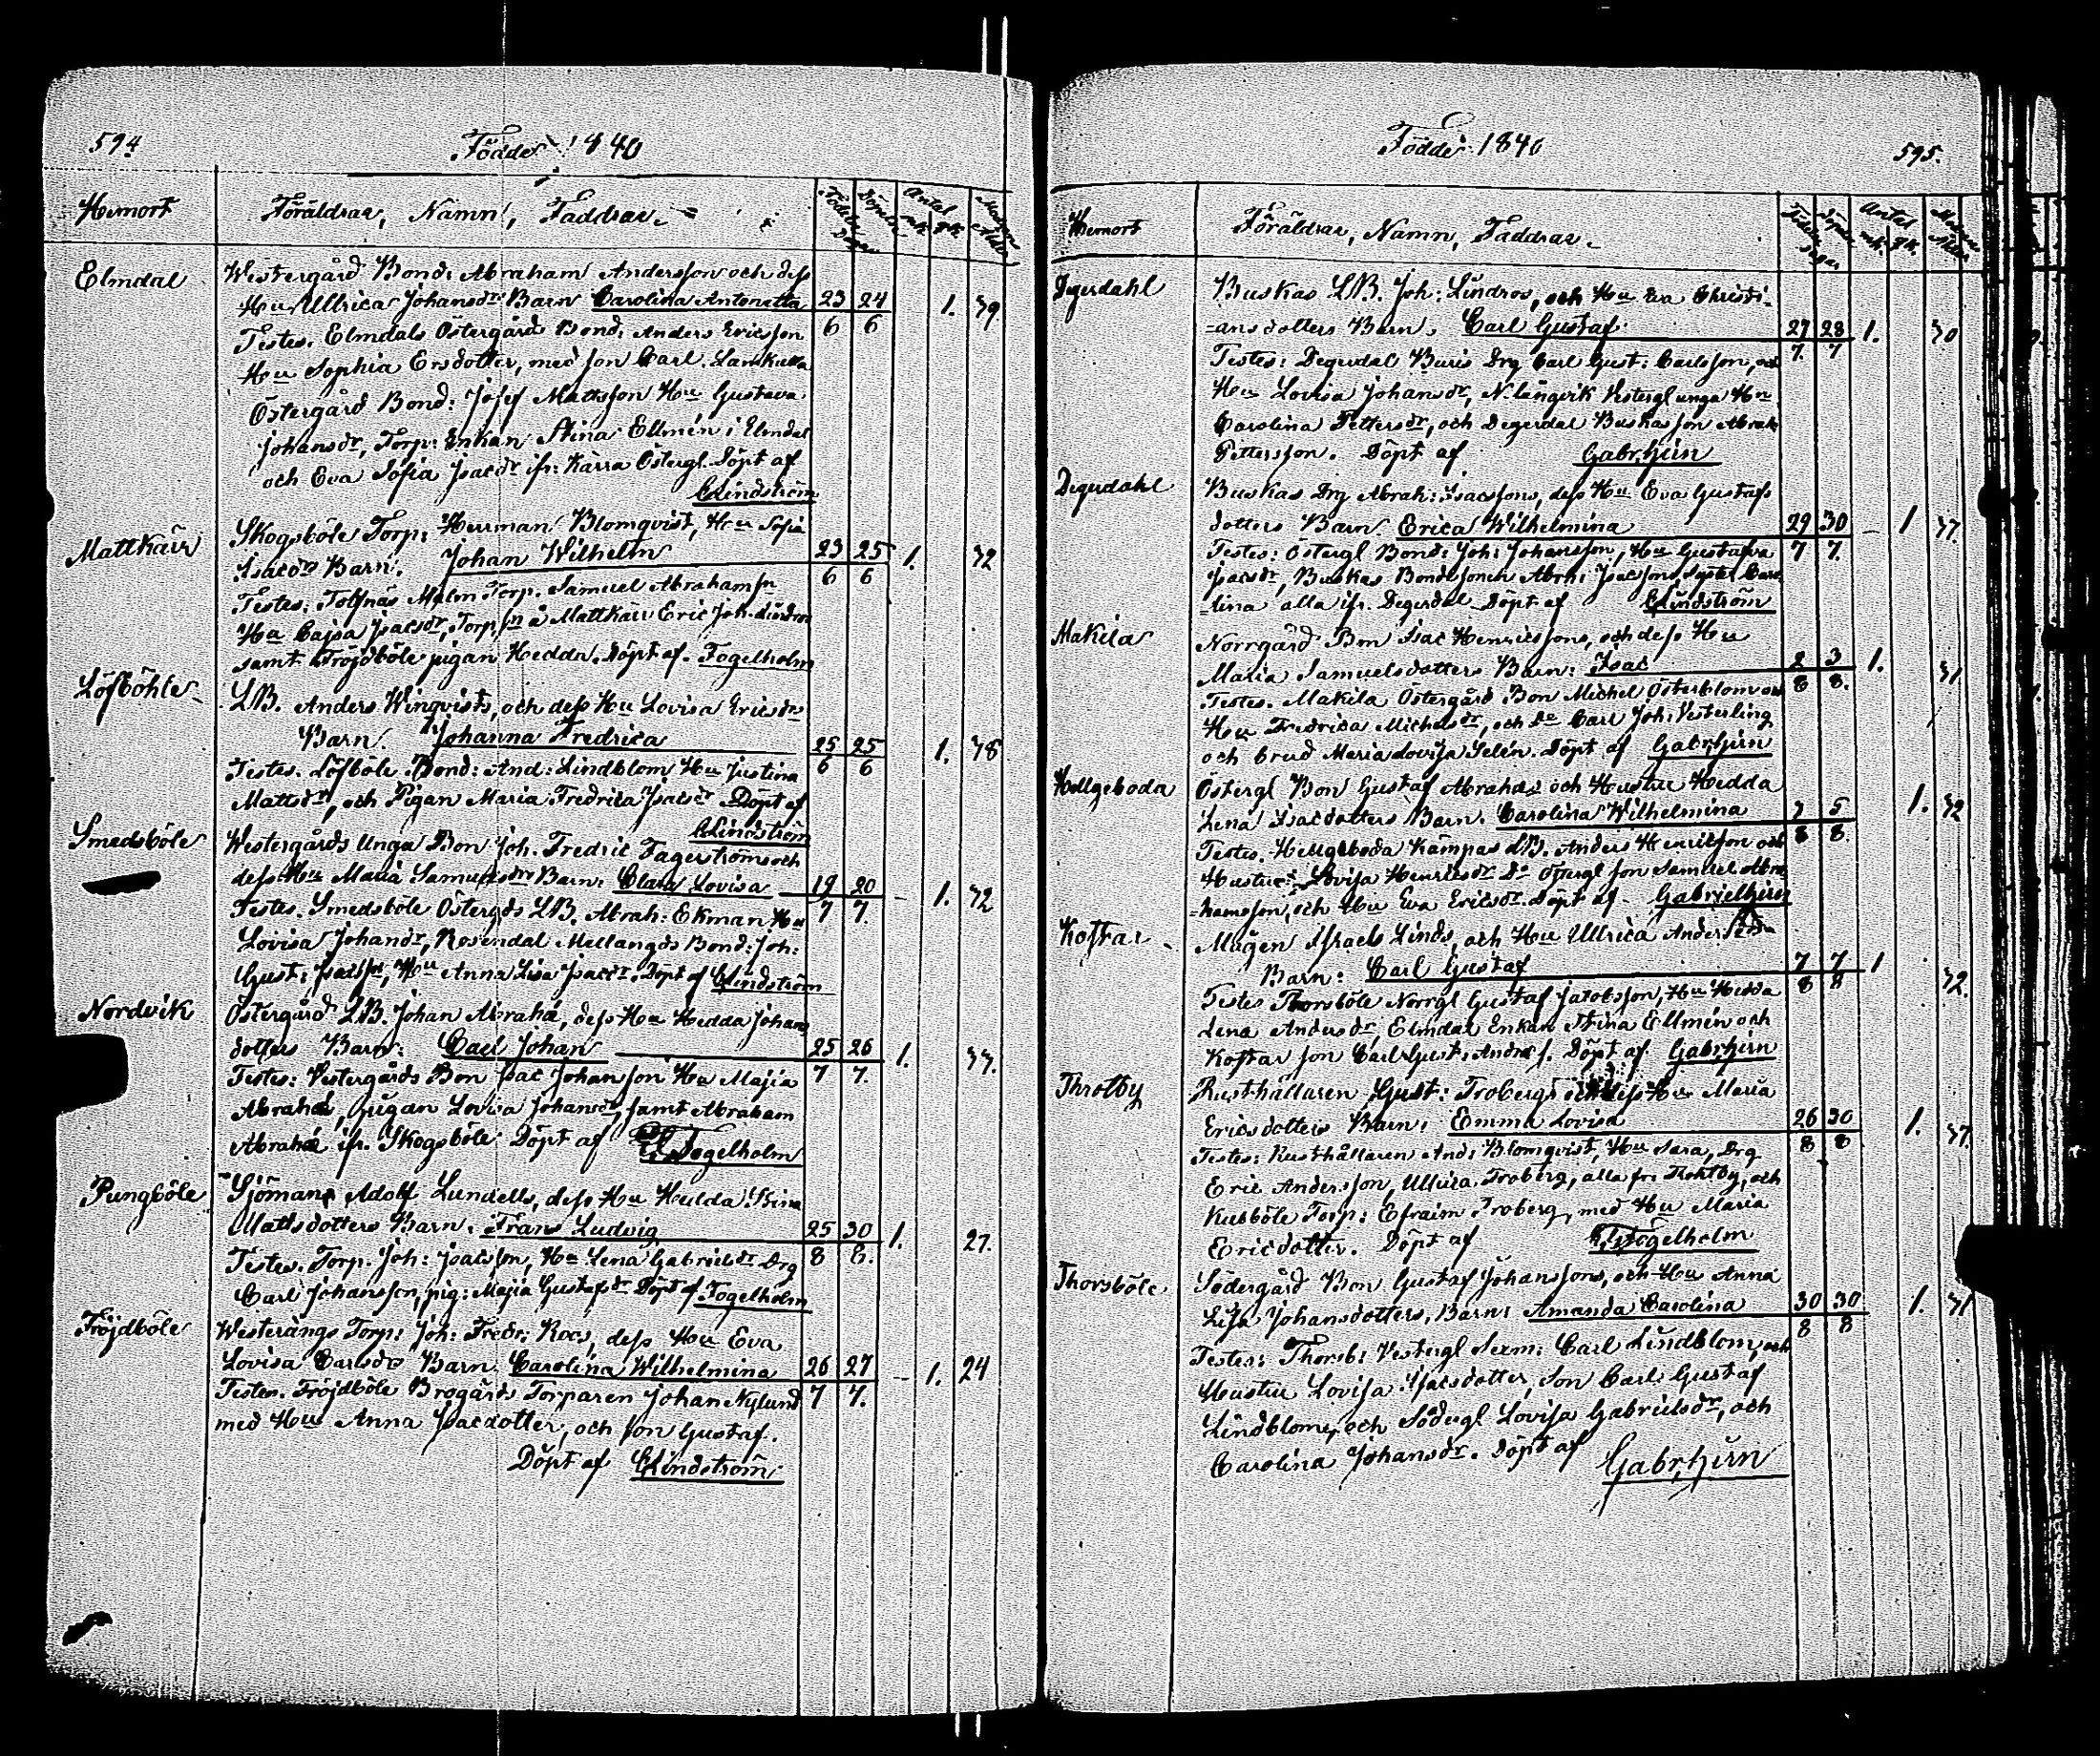 594
Födde 1840
Hemort
Föräldrar, Namn, Faddrar
Födelse Döpelse Dagar
Antal mk. qk.
Modrens Ålder
Elmdal
Westergård Bond: Abraham Andersson och dess
Hu Ullrica Johansdr Barn Carolina Antonetta 23/6 24/6 1. 39
Testes. Elmdals Östergård Bond: Anders Ericsson
Hu Sophia Ersdotter, med son Carl. Lankulla
Östergård Bond: Josef Mattsson Hu Gustava
Johansdr, Torp: Enkan Stina Ellmén i Elmdal
och Eva Sofia Isacdr ifr: Kärra Östergl. Döpt af
CLindström
Mattkärr
Skogsböle Torp: Herrman Blomqvist, Hu Sofia
Isacdrs Barn. Johan Wilhelm 23/6 25/6 1. 32
Testes: Tolfnäs Malm Torp. Samuel Abrahamsn
Hu Cajsa Isacsdr, Torp.sn å Mattkärr Eric Joh. Lindros
samt Fröjdböle pigan Hedda. Döpt af. Fogelholm
Löfböhle
LB. Anders Winqvists, och dess Hu Lovisa Ericsdrs
Barn. Johanna Fredrica 25/6 25/6 1. 38
Testes. Löfböle Bond: And: Lindblom Hu Justina
Mattsdr, och Pigan Maria Fredrica Isacsdr Döpt af
CLindström
Smedsböle
Westergårds Unga Bon Joh. Fredric Fagerströms och
dess Hu Maria Samuelsdrs Barn: Clara Lovisa 19/7 20/7 - 1. 32
Testes. Smedsböle Östergds LB. Abrah: Ekman Hu
Lovisa Johansdr, Rosendal Mellangds Bond: Joh:
Gust: Isacssn, Hu Anna Lisa Isacsdr. Döpt af CLindström
Nordvik
Östergård LB. Johan Abrahà, dess Hu Hedda Johans
dotters Barn: Carl Johan 25/7 26/7. 1. 37.
Testes: Vestergårds Bon Isac Johansson Hu Majia
Abrahà, Pigan Lovisa Johansdr, samt Abraham
Abrahà ifr. Skogsböle Döpt af Fogelholm
Pungböle
Sjöman Adolf Lundells, dess Hu Hedda Stina
Mattsdotters Barn. Frans Ludvig 25/8 30/8. 1. 27.
Testes. Torp. Joh: Isacsson, Hu Lena Gabrielsdr Drg
Carl Johansson, pig: Majia Gustafsdr Döpt af Fogelholm
Fröjdböle
Westerängs Torp: Joh: Fredr: Roos, dess Hu Eva
Lovisa Carlsdrs Barn. Carolina Wilhelmina 26/7 27/7. - 1. 24
Testes. Fröjdböle Brogårds Torparen Johan Nylund
med Hu Anna Isacdotter, och son Gustaf.
Döpt af CLindström
Födde 1840
595.
Hemort
Föräldrar, Namn, Faddrar
Födelse Döpelse Dagar
Antal mk. qk.
Modrens Ålder
Degerdahl
Buskas LB. Joh: Lindros, och Hu Eva Christi-
-ans dotters Barn. Carl Gustaf 27/7. 28/7 1. 30
Testes: Degerdal Buris Drg Carl Gust: Carlsson, och
Hu Lovisa Johansdr, N. längvik Vestergl unga Hu
Carolina Pettersdr, och Degerdal Buskas son Abrah
Pettersson. Döpt af Gabr,hjün
Degerdahl
Buskas Drg Abrah: Isacssons, dess Hu Eva Gustafs
dotters Barn. Erica Wilhelmina 29/7 30/7. - 1 37.
Testes: Östergl Bond: Joh: Johansson, Hu Gustafva
Isacsdr, Buskas Bondesonen Abrh: Isacsson, Syster Caro
-lina alla ifr. Degerdal Döpt af CLindström
Makila
Norrgård Bon Isac Henricssons, och dess Hu
Maria Samuelsdotters Barn: Isac 2/8 3/8. 1. 31
Testes. Makila Östergård Bon Michel Österblom och
Hu Fredrica Michelsdr, och Do Carl Joh: Vesterling
och brud Maria Lovisa Selén. Döpt af Gabr,hjün
Hellgeboda
Östergl Bon Gustaf Abrahàs och Hustru Hedda
Lena Isacdotters Barn. Carolina Wilhelmina 3/8 5/8. 1. 32
Testes. Hellgeboda Kämpas LB. Anders Henricsson och
Hustru Lovisa Henricsdr Do Östergl son Samuel Abra
-hamsson, och Hu Eva Ericsdr Döpt af Gabrielhjün
Koffar
Mågen Israels Linds, och Hu Ullrica Anders
Barn: Carl Gustaf 7/8 7/8 1 32.
Testes Thorsböle Norrgl Gustaf Jacobsson, Hu Hedda
Lena Andersdr, Elmdal Enkan Stina Ellmén och
Koffar son Carl Gust: Anders. Döpt af Gabr,hjün
Throtby
Rusthållaren Gust: Trobergs och dess Hu Maria
Ericsdotters Barn. Emma Lovisa 26/8 30/8 1. 37.
Testes: Rusthållaren And: Blomqvist, Hu Sara, Drg
Eric Andersson, Ullrica Troberg, alla fr: Throtby, och
Kusböle Torp: Efraim Troberg, med Hu Maria
Ericdotter. Döpt af Fogelholm
Thorsböle
Södergård Bon Gustaf Johanssons, och Hu Anna
Lisa Johansdotters, Barn: Amanda Carolina 30/8 30/8 1. 31
Testes: Thorsb: Vestergl Carl Lindblom, och
Hustru Lovisa Isacsdotter, Son Carl Gustaf
Lindblom, och Södergl Lovisa Gabrielsdr, och
Carolina Johansdr. Döpt af
Gabr,hjün